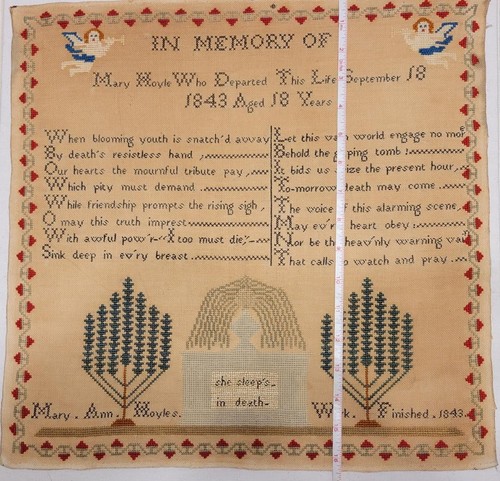 IN MEMORY OF
Mary Hoyle Who Departed This Life September 18
1843 Aged 18 Years
When blooming youth is snatch'd away
By death's resistless hand,
Our hearts the mournful tribute pay,
Which pity must demand.
While friendship prompts the rising sigh,
O may this truth imprest
With awful pow'r--I too must die;
Sink deep in ev'ry breast.
Let this vain world engage no mor
Behold the gaping tomb!
It bids us seize the present hour,
To-morrow death may come.
The voice of this alarming scene,
May ev'ry heart obey:
Nor be the heav'nly warning vain
That calls to watch and pray.
she sleep's
in death
Mary. Ann. Hoyles. Work. Finished. 1843.